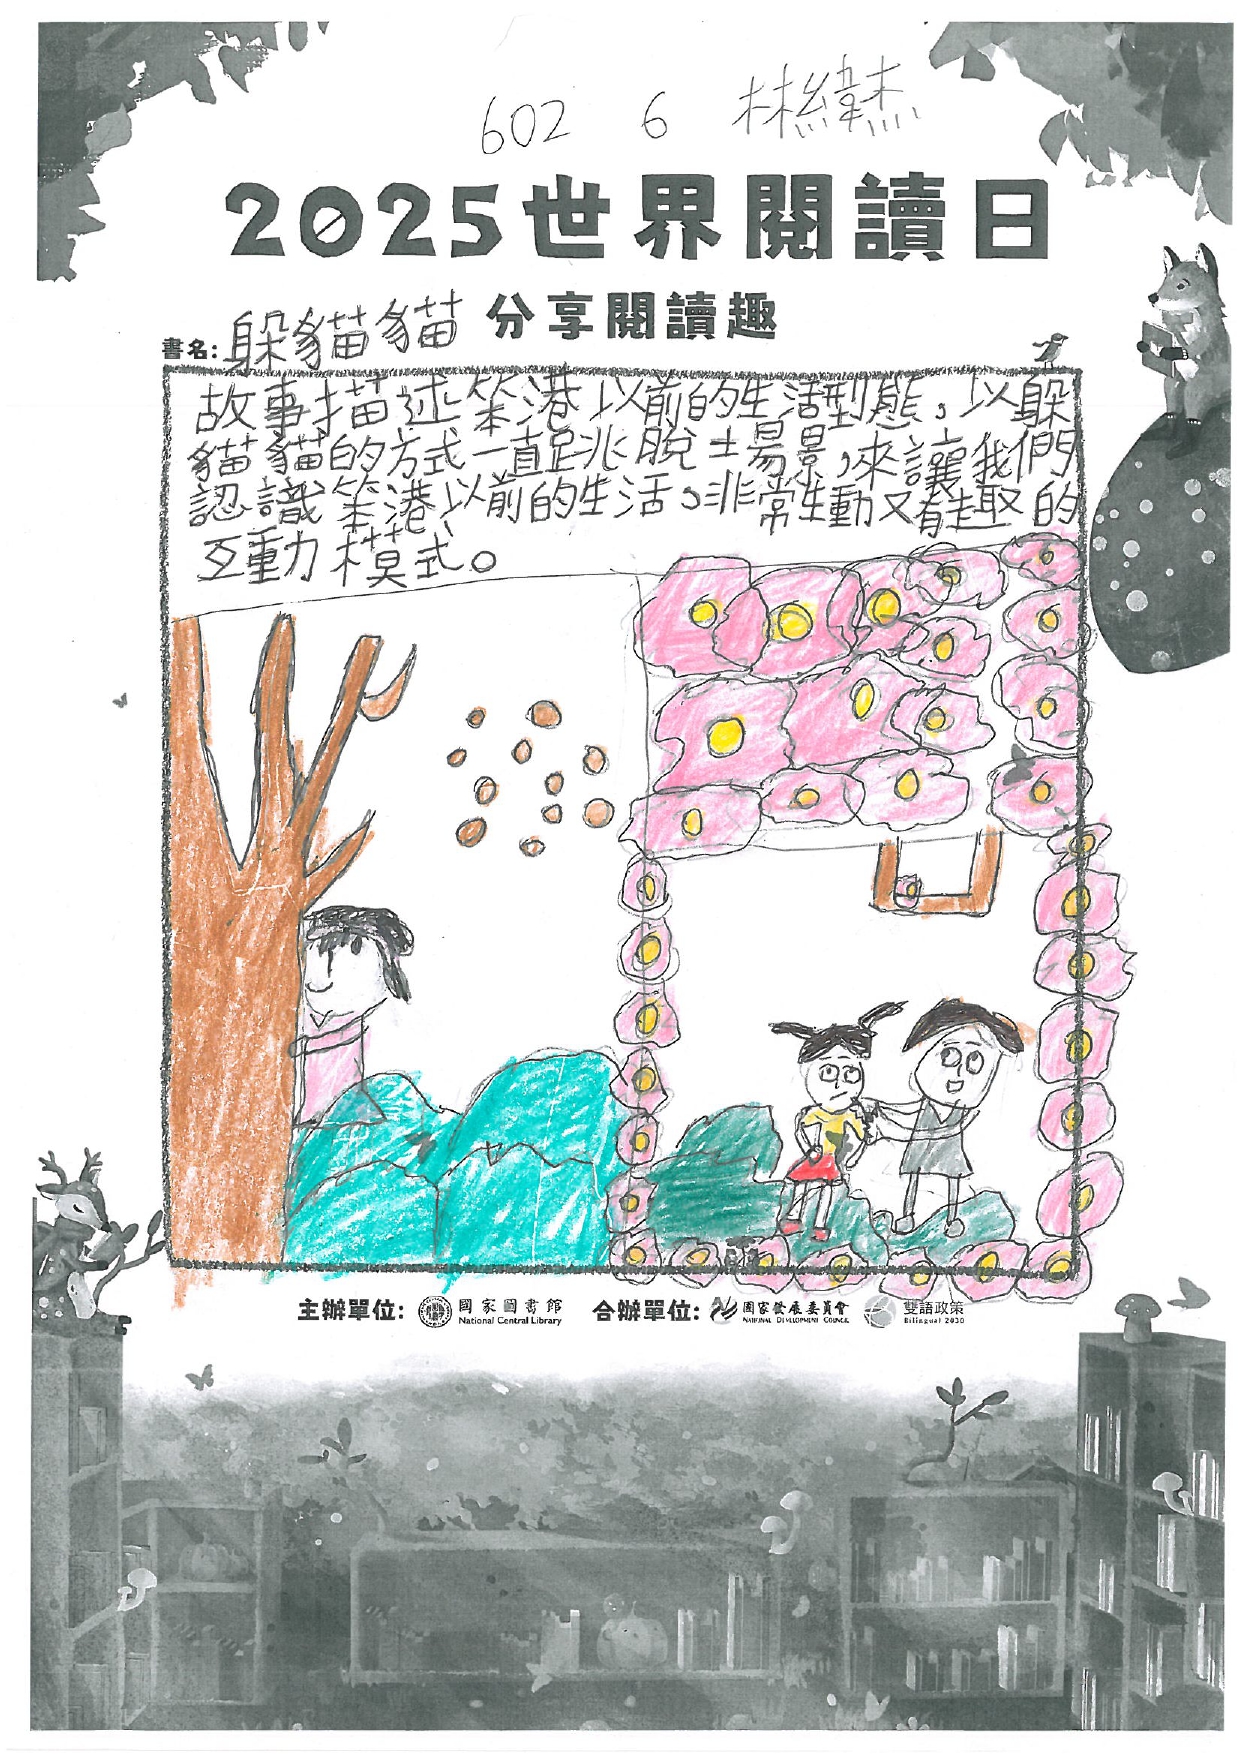 602 6 林緯杰
2025世界閱讀日
分享閱讀趣
書名:躲貓貓
故事描述笨港以前的生活型態,以躲
貓貓的方式一直跳脫場景,來讓我們
認識笨港以前的生活。非常生動又有趣的
互動模式。
主辦單位: 國家圖書館 National Central Library 合辦單位: 國家發展委員會 NATIONAL DEVELOPMENT COUNCIL 雙語政策 Bilingual 2030